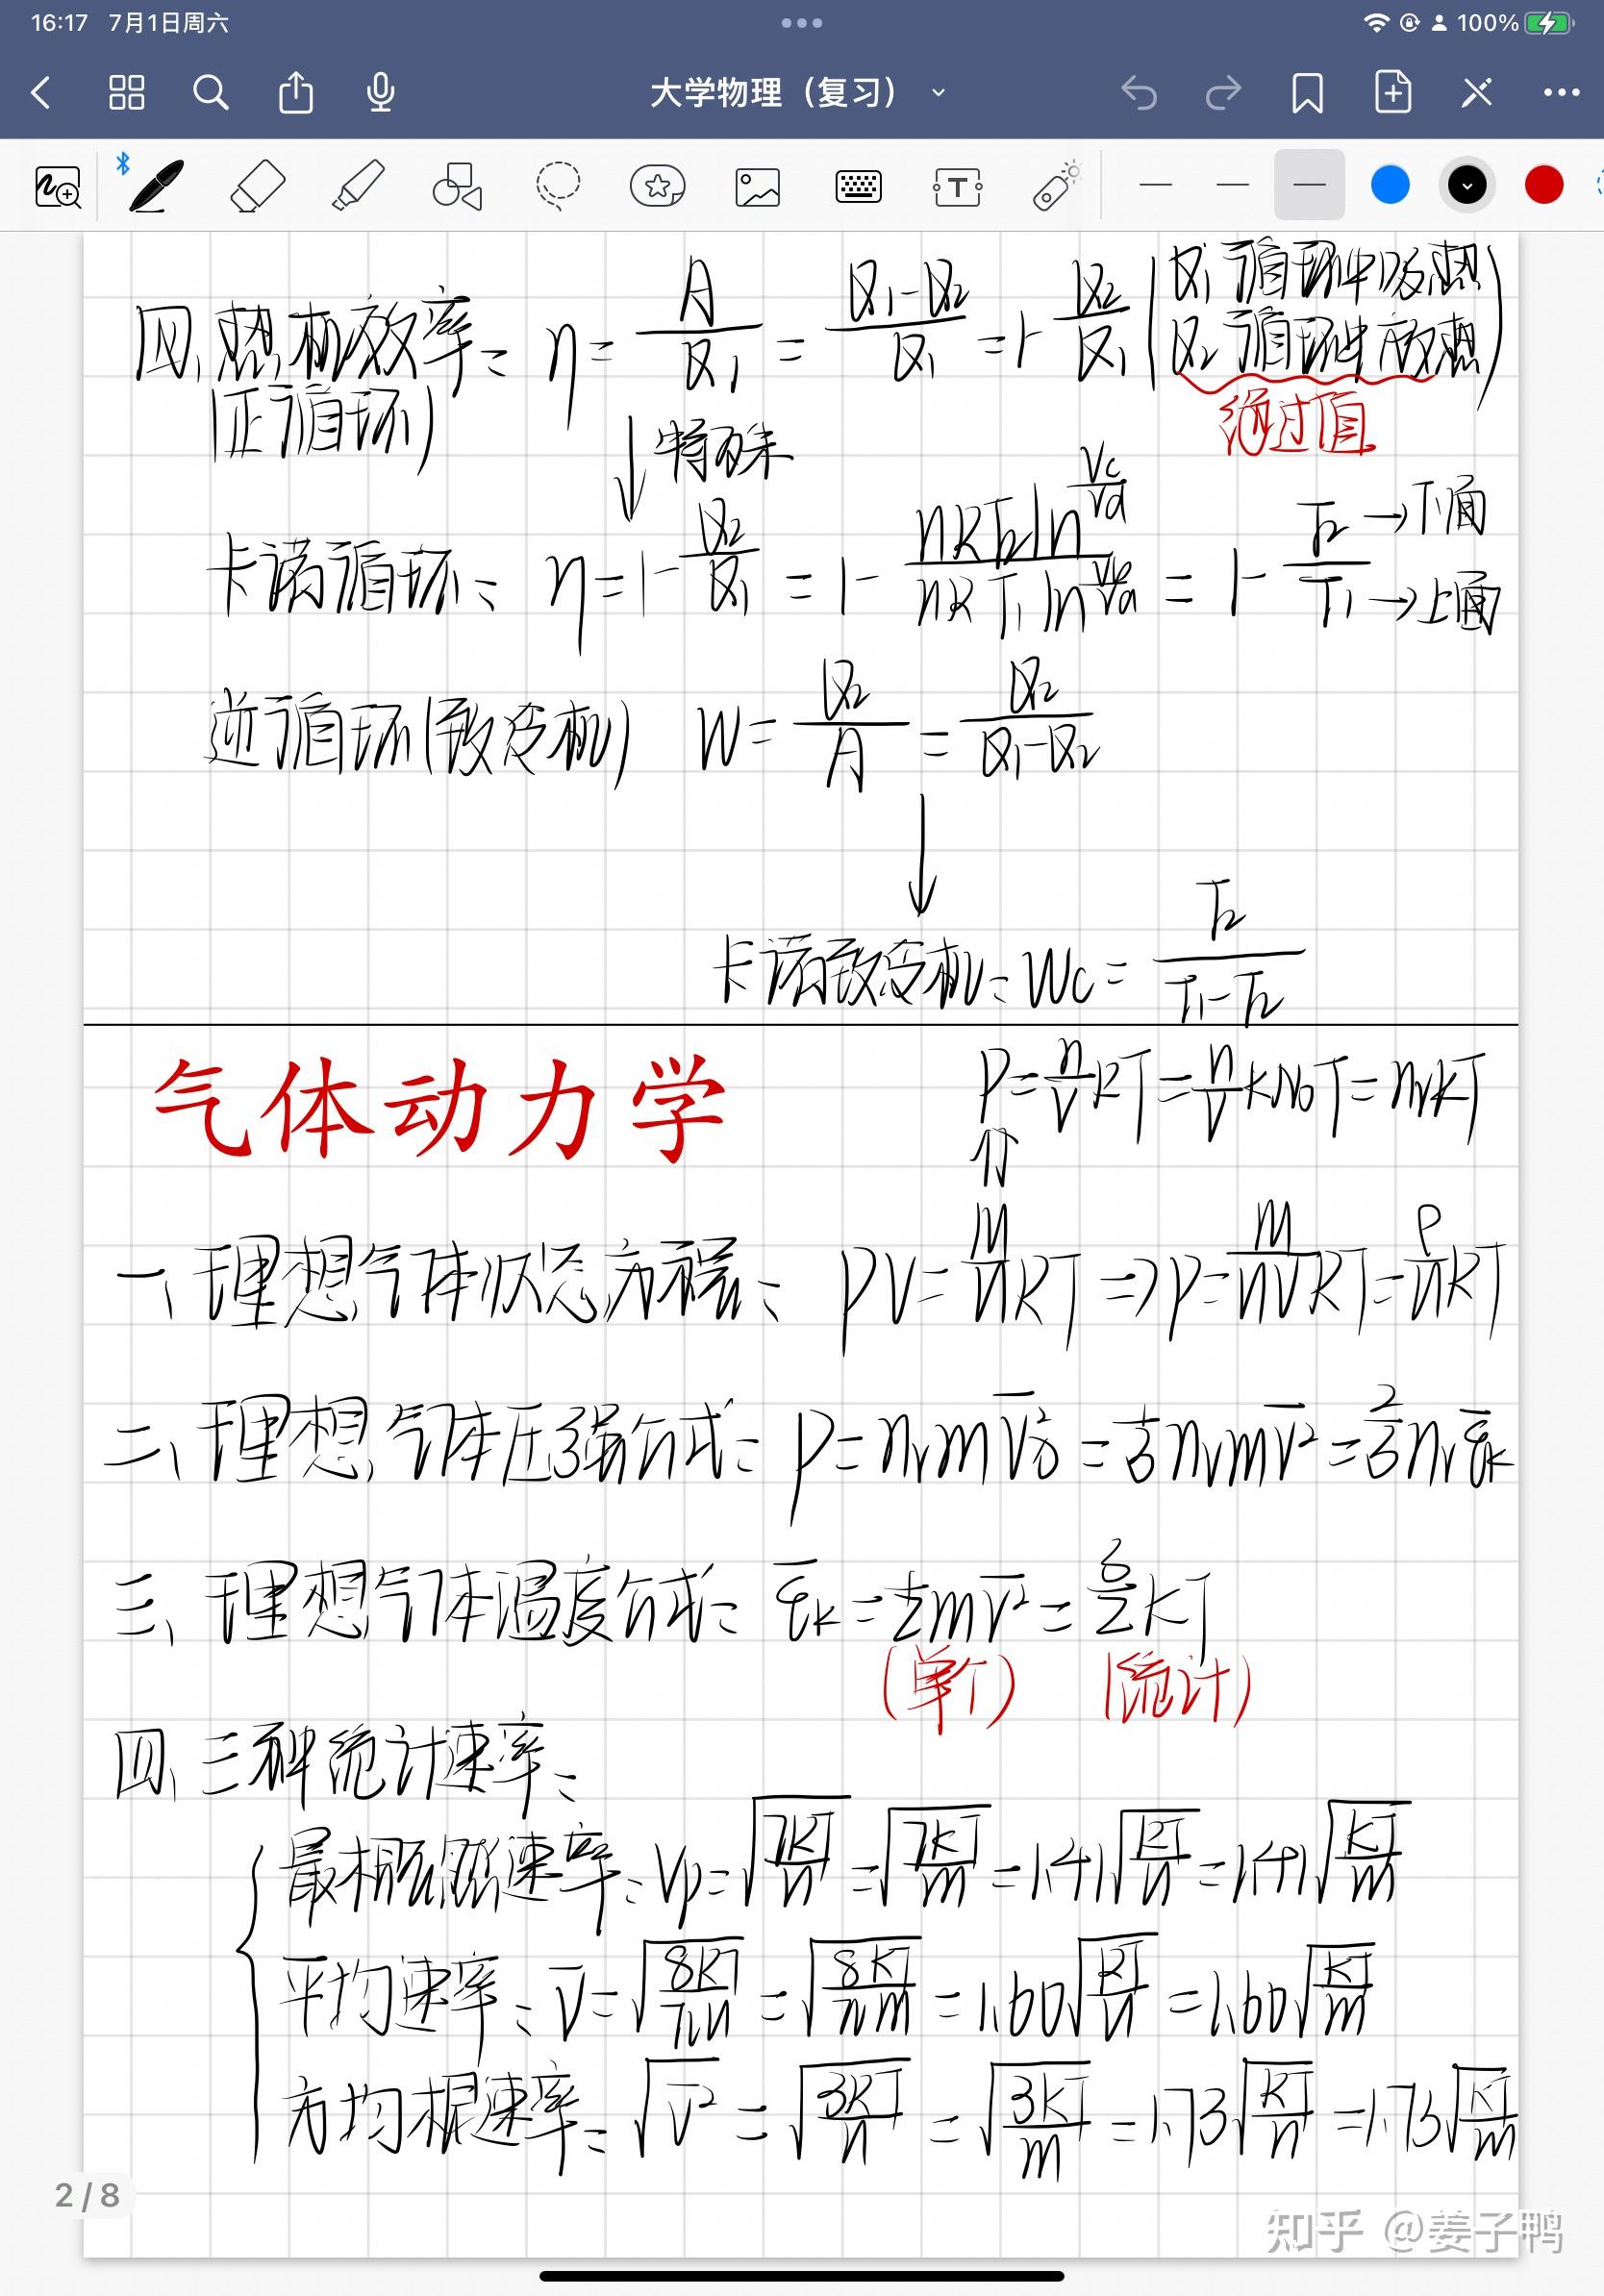 16:17 7月1日周六 100%
大学物理（复习）
四、热机效率: η = A/Q1 = (Q1-Q2)/Q1 = 1-Q2/Q1 (Q1 循环中吸热
Q2 循环中放热)
(正循环)
绝对值
↓特殊
卡诺循环: η = 1-Q2/Q1 = 1-(nRT2 ln Vc/Vd)/(nRT1 ln Vb/Va) = 1-T2/T1 →下面
→上面
逆循环(致冷机) W = Q2/A = Q2/(Q1-Q2)
↓
卡诺致冷机: Wc = T2/(T1-T2)
气体动力学
P = n/V RT = n/V KN0T = nvKT
⇑
一、理想气体状态方程: PV = M/μ RT ⇒ P = M/μV RT = ρ/μ RT
二、理想气体压强公式: P = nvm = 1/3 nvmv̄² = 2/3 nvε̄k
三、理想气体温度公式: ε̄k = 1/2 mv̄² = 3/2 KT
(单个) (统计)
四、三种统计速率:
最概然速率: Vp = √(2RT/μ) = √(2KT/m) = 1.41√(RT/μ) = 1.41√(KT/m)
平均速率: V̄ = √(8RT/πμ) = √(8KT/πm) = 1.60√(RT/μ) = 1.60√(KT/m)
方均根速率: √v̄² = √(3RT/μ) = √(3KT/m) = 1.73√(RT/μ) = 1.73√(KT/m)
2 / 8
知乎 @姜子鸭